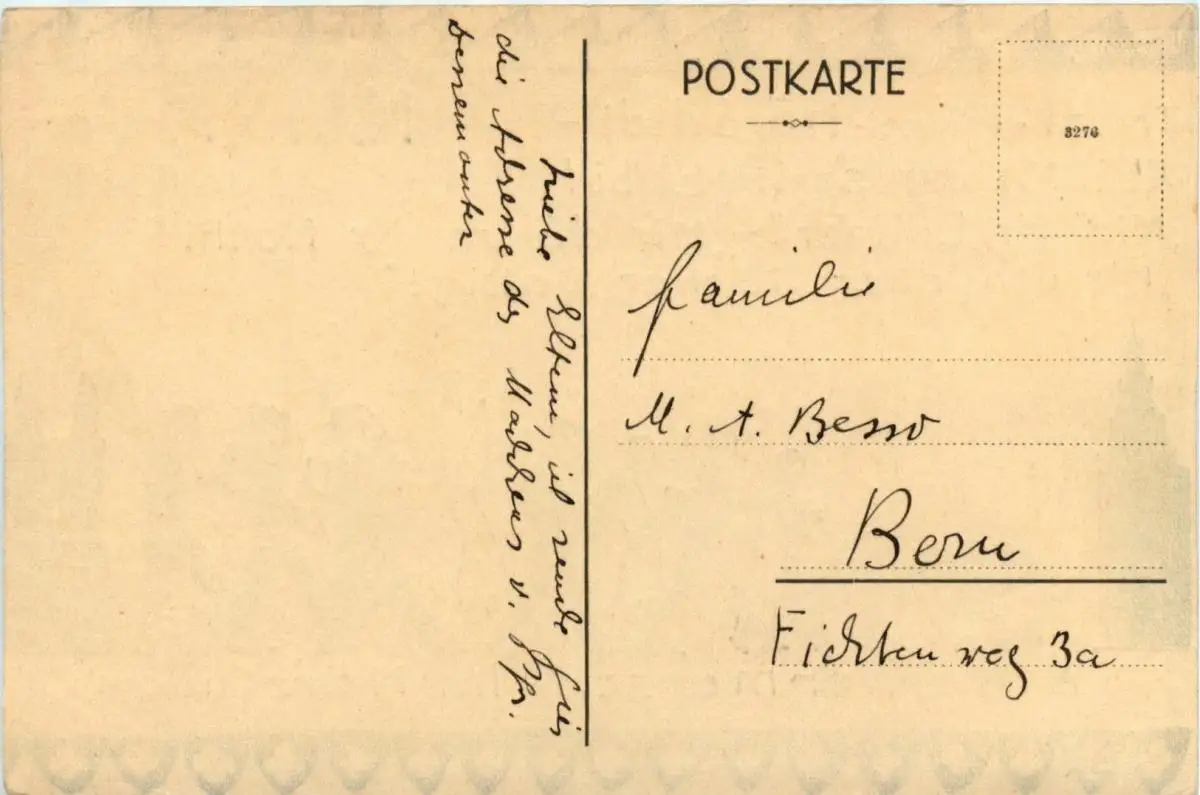 POSTKARTE
3276
Familie
M. A. Besso
Bern
Fichtenweg 3a
Liebe Eltern, ich sende hier
die Adresse des Mädchens v. Pfr.